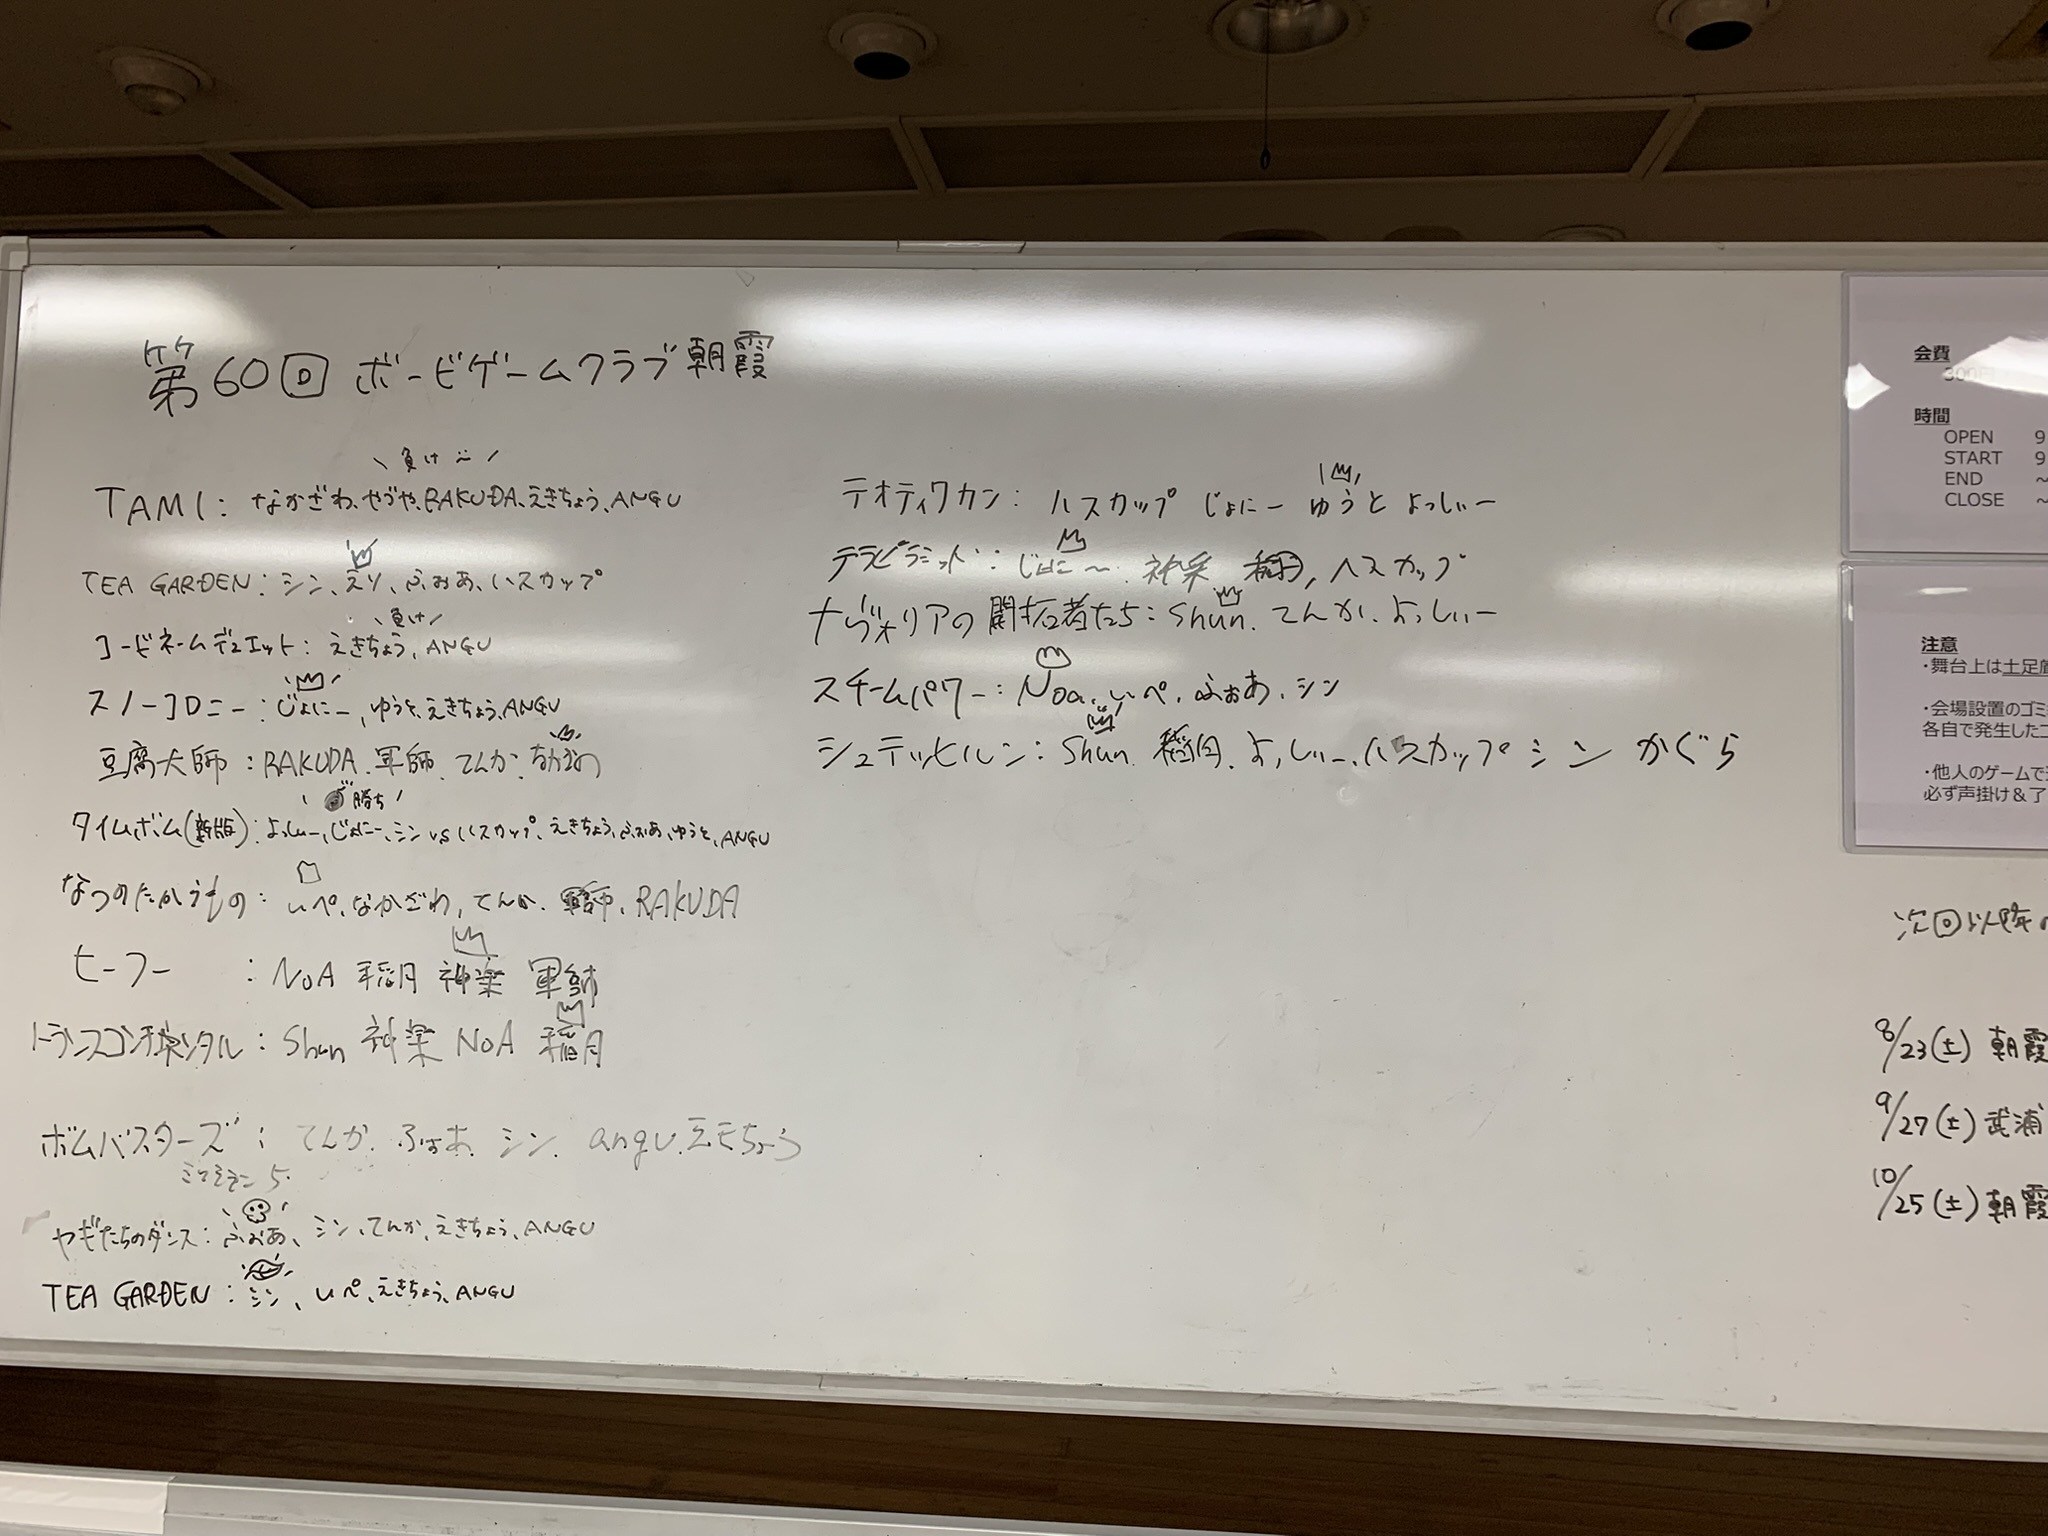 第60回 ボードゲームクラブ朝霞
\ 負け /
TAMI: なかざわ、やづや、RAKUDA、えきちょう、ANGU
TEA GARDEN: シン、えり、ふぉあ、ハスカップ
\ 負け /
コードネームデュエット: えきちょう、ANGU
スノーコロニー: じょにー、ゆうと、えきちょう、ANGU
豆腐大師: RAKUDA、軍師、てんか、
勝ち
タイムボム(新版): よっしぃー、じょにー、シン vs ハスカップ、えきちょう、ふぉあ、ゆうと、ANGU
なつのたからもの: いぺ、なかざわ、てんか、軍師、RAKUDA
ヒーフー : NoA 稲月 神楽 軍師
トランスコンチネンタル: Shun 神楽 NoA 稲月
ボムバスターズ: てんか、ふぉあ、シン、angu、えきちょう
ミッション 5
ヤギたちのダンス: ふぉあ、シン、てんか、えきちょう、ANGU
TEA GARDEN: シン、いぺ、えきちょう、ANGU
テオティワカン: ハスカップ じょにー ゆうと よっしぃー
テラピラミッド: じょに〜、神楽、稲月、ハスカップ
ナヴォリアの開拓者たち: Shun、てんか、よっしぃー
スチームパワー: Noa、いぺ、ふぉあ、シン
シュティッヒルン: Shun、稲月、よっしぃー、ハスカップ シン かぐら
会費
300円
時間
OPEN 9
START 9
END ～
CLOSE ～
注意
・舞台上は土足厳
・会場設置のゴミ
各自で発生したゴ
・他人のゲームで
必ず声掛け＆了
次回以降の
8/23(土) 朝霞
9/27(土) 武浦
10/25(土) 朝霞